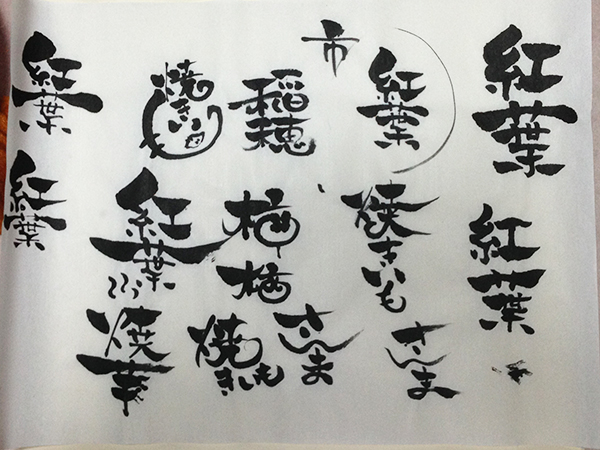 紅葉
紅葉
紅葉
焼きいも
さんま
市
さんま
稲穂
焼きいも
焼きいも
紅葉
焼
紅葉
紅葉